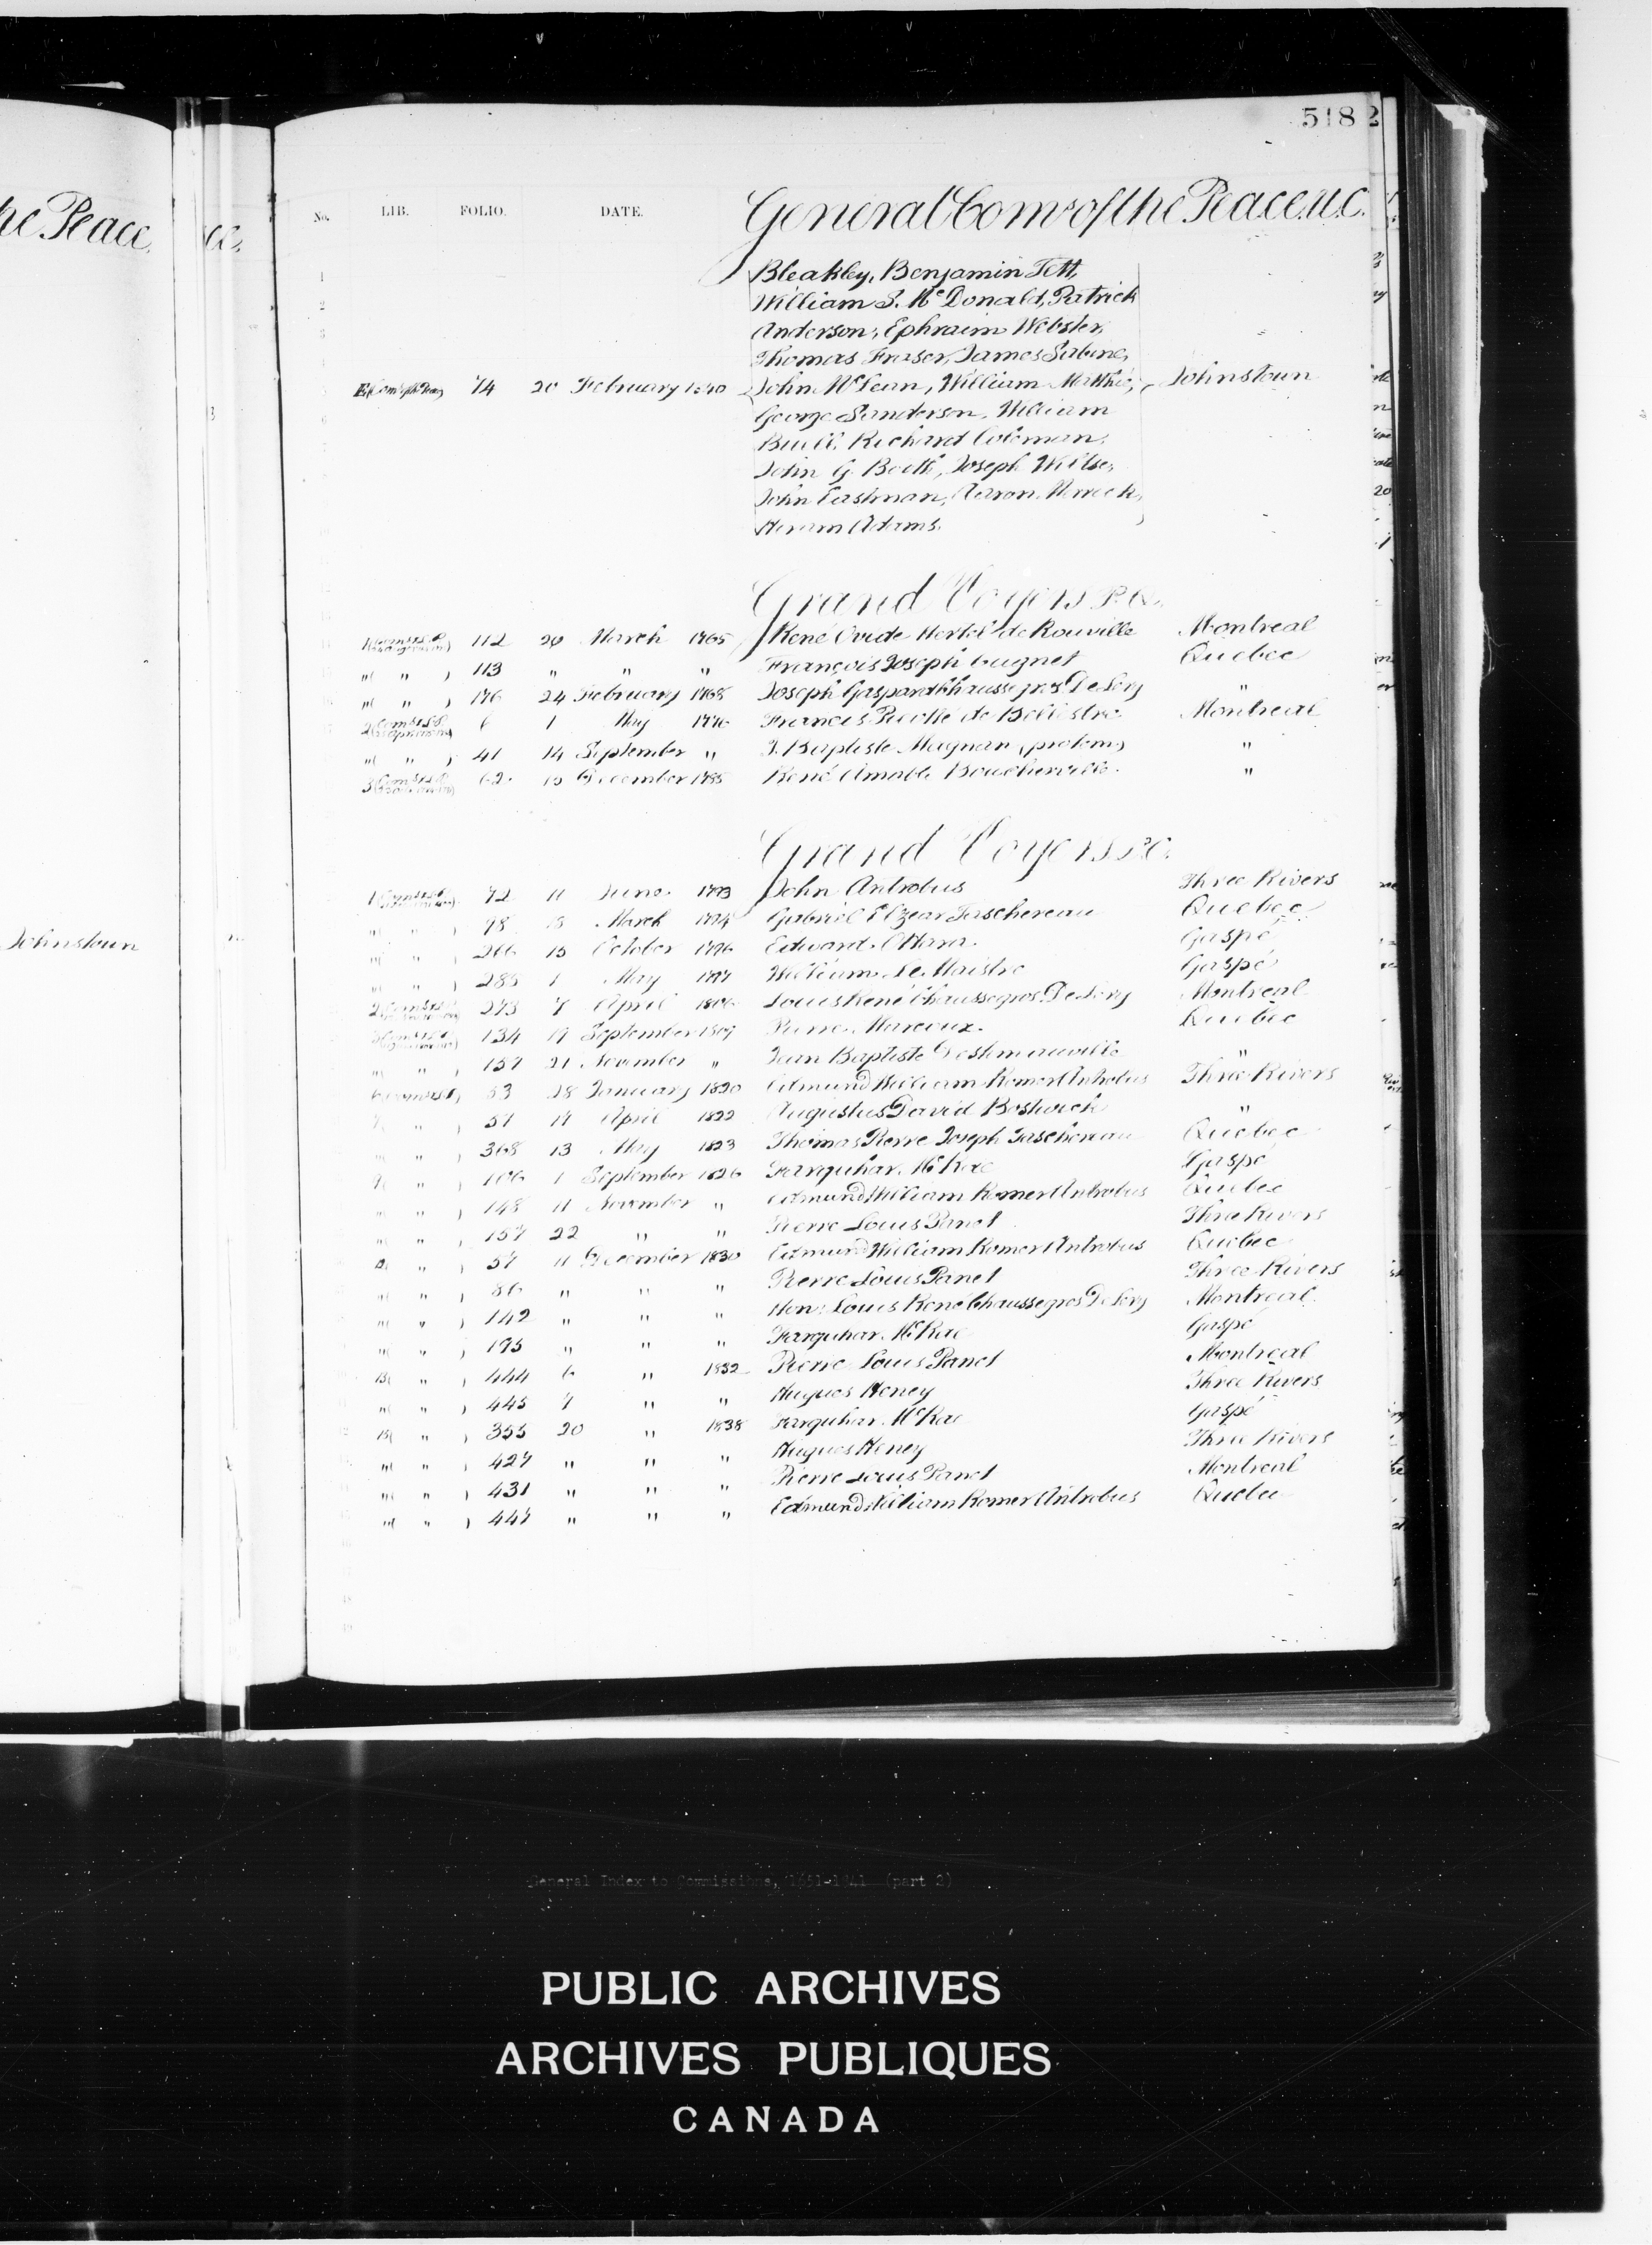 he Peace.
Johnstown
518
No. LIB. FOLIO. DATE. General Comns of the Peace, U.C.
Bleakley, Benjamin Tett,
William S. McDonald, Patrick
Anderson, Ephraim Webster,
Thomas Fraser, James Sabine,
74 20 February 1840 John McLean, William Matthie, Johnstown
George Sanderson, William
Buell, Richard Coleman,
John G. Booth, Joseph Wiltse,
John Eastman, Aaron Merrick,
Hiram Adams.
Grand Voyers P.Q.
112 26 March 1765 René Ovide Hertel de Rouville Montreal
"( " ) 113 " " " François Joseph Cugnet Quebec
"( " ) 176 24 February 1768 Joseph Gaspard Chaussegros De Lery "
6 1 May 1776 Francis Picotté de Bellestre Montreal
"( " ) 41 14 September " J. Baptiste Magnan (protem) "
62 15 December 1785 René Amable Boucherville. "
Grand Voyers L.C.
72 11 June 1793 John Antrobus Three Rivers
98 March 1794 Gabriel Elzear Taschereau Quebec
266 15 October 1796 Edward O'Hara. Gaspé
285 1 May 1797 William Le Maistre Gaspé
273 7 April 1806 Louis René Chaussegros De Lery Montreal
134 19 September 1809 Pierre Marcoux. Quebec
" " ) 157 21 November " Jean Baptiste Destimauville "
53 28 January 1820 Edmund William Romer Antrobus Three Rivers
57 17 April 1822 Augustus David Bostwick "
" " ) 368 13 May 1823 Thomas Pierre Joseph Taschereau Quebec
9( " ) 106 1 September 1826 Farquhar McRae Gaspé
"( " ) 148 11 November " Edmund William Romer Antrobus Quebec
"( " ) 157 22 " " Pierre Louis Panet Three Rivers
" ) 57 11 December 1830 Edmund William Romer Antrobus Quebec
"( " ) 86 " " " Pierre Louis Panet Three Rivers
"( " ) 142 " " " Hon: Louis René Chaussegros De Lery Montreal
"( " ) 175 " " " Farquhar McRae Gaspé
13( " ) 444 6 " 1832 Pierre Louis Panet Montreal
"( " ) 445 7 " " Hugues Heney Three Rivers
" ) 355 20 " 1838 Farquhar McRae Gaspé
"( " ) 427 " " " Hugues Heney Three Rivers
"( " ) 431 " " " Pierre Louis Panet Montreal
"( " ) 447 " " " Edmund William Romer Antrobus Quebec
General Index to Commissions, 1651-1841 (part 2)
PUBLIC ARCHIVES
ARCHIVES PUBLIQUES
CANADA